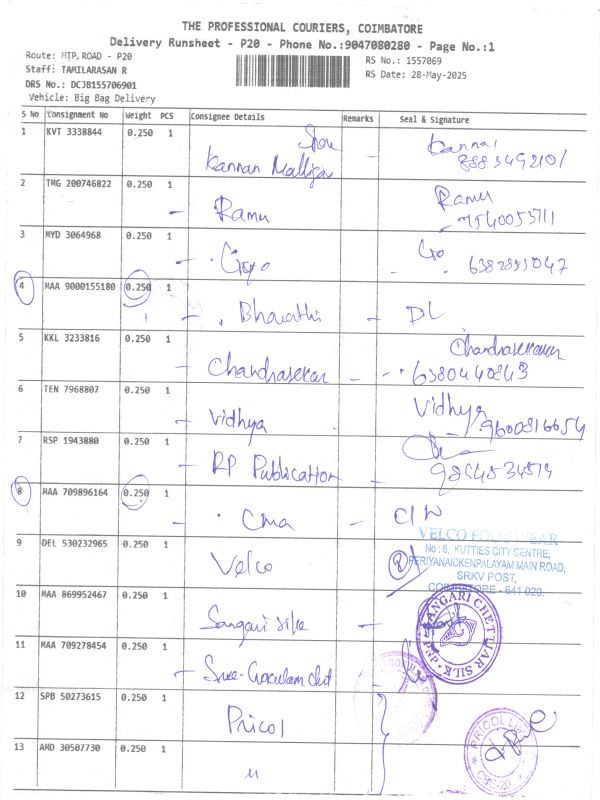 THE PROFESSIONAL COURIERS, COIMBATORE
Delivery Runsheet - P20 - Phone No.:9047080280 - Page No.:1
Route: MTP ROAD - P20
Staff: TAMILARASAN R
DRS No.: DCJB155706901
Vehicle: Big Bag Delivery
RS No.: 1557069
RS Date: 28-May-2025
S No Consignment No Weight PCS Consignee Details Remarks Seal & Signature
1 KVT 3338844 0.250 1
Kannan
2 TMG 200746822 0.250 1 Ramu Ramu
3 MYD 3064968 0.250 1
4 MAA 9000155180 0.250 1 Bharathi - DL
5 KKL 3233816 0.250 1 Chandrasekar - Chandrasekaran
6380440843
6 TEN 7968807 0.250 1 Vidhya Vidhya
9600816654
7 RSP 1943880 0.250 1 RP Publication
8 MAA 709896164 0.250 1 Cma -
9 DEL 530232965 0.250 1 Velco
No:6, KUTTIES CITY CENTRE,
PERIYANAICKENPALAYAM MAIN ROAD,
SRKV POST,
COIMBATORE - 641 020.
10 MAA 869952467 0.250 1 Sangari silk -
11 MAA 709278454 0.250 1 Sree Gokulam chit
12 SPB 50273615 0.250 1 Pricol
PRICOL
13 AMD 30507730 0.250 1 "